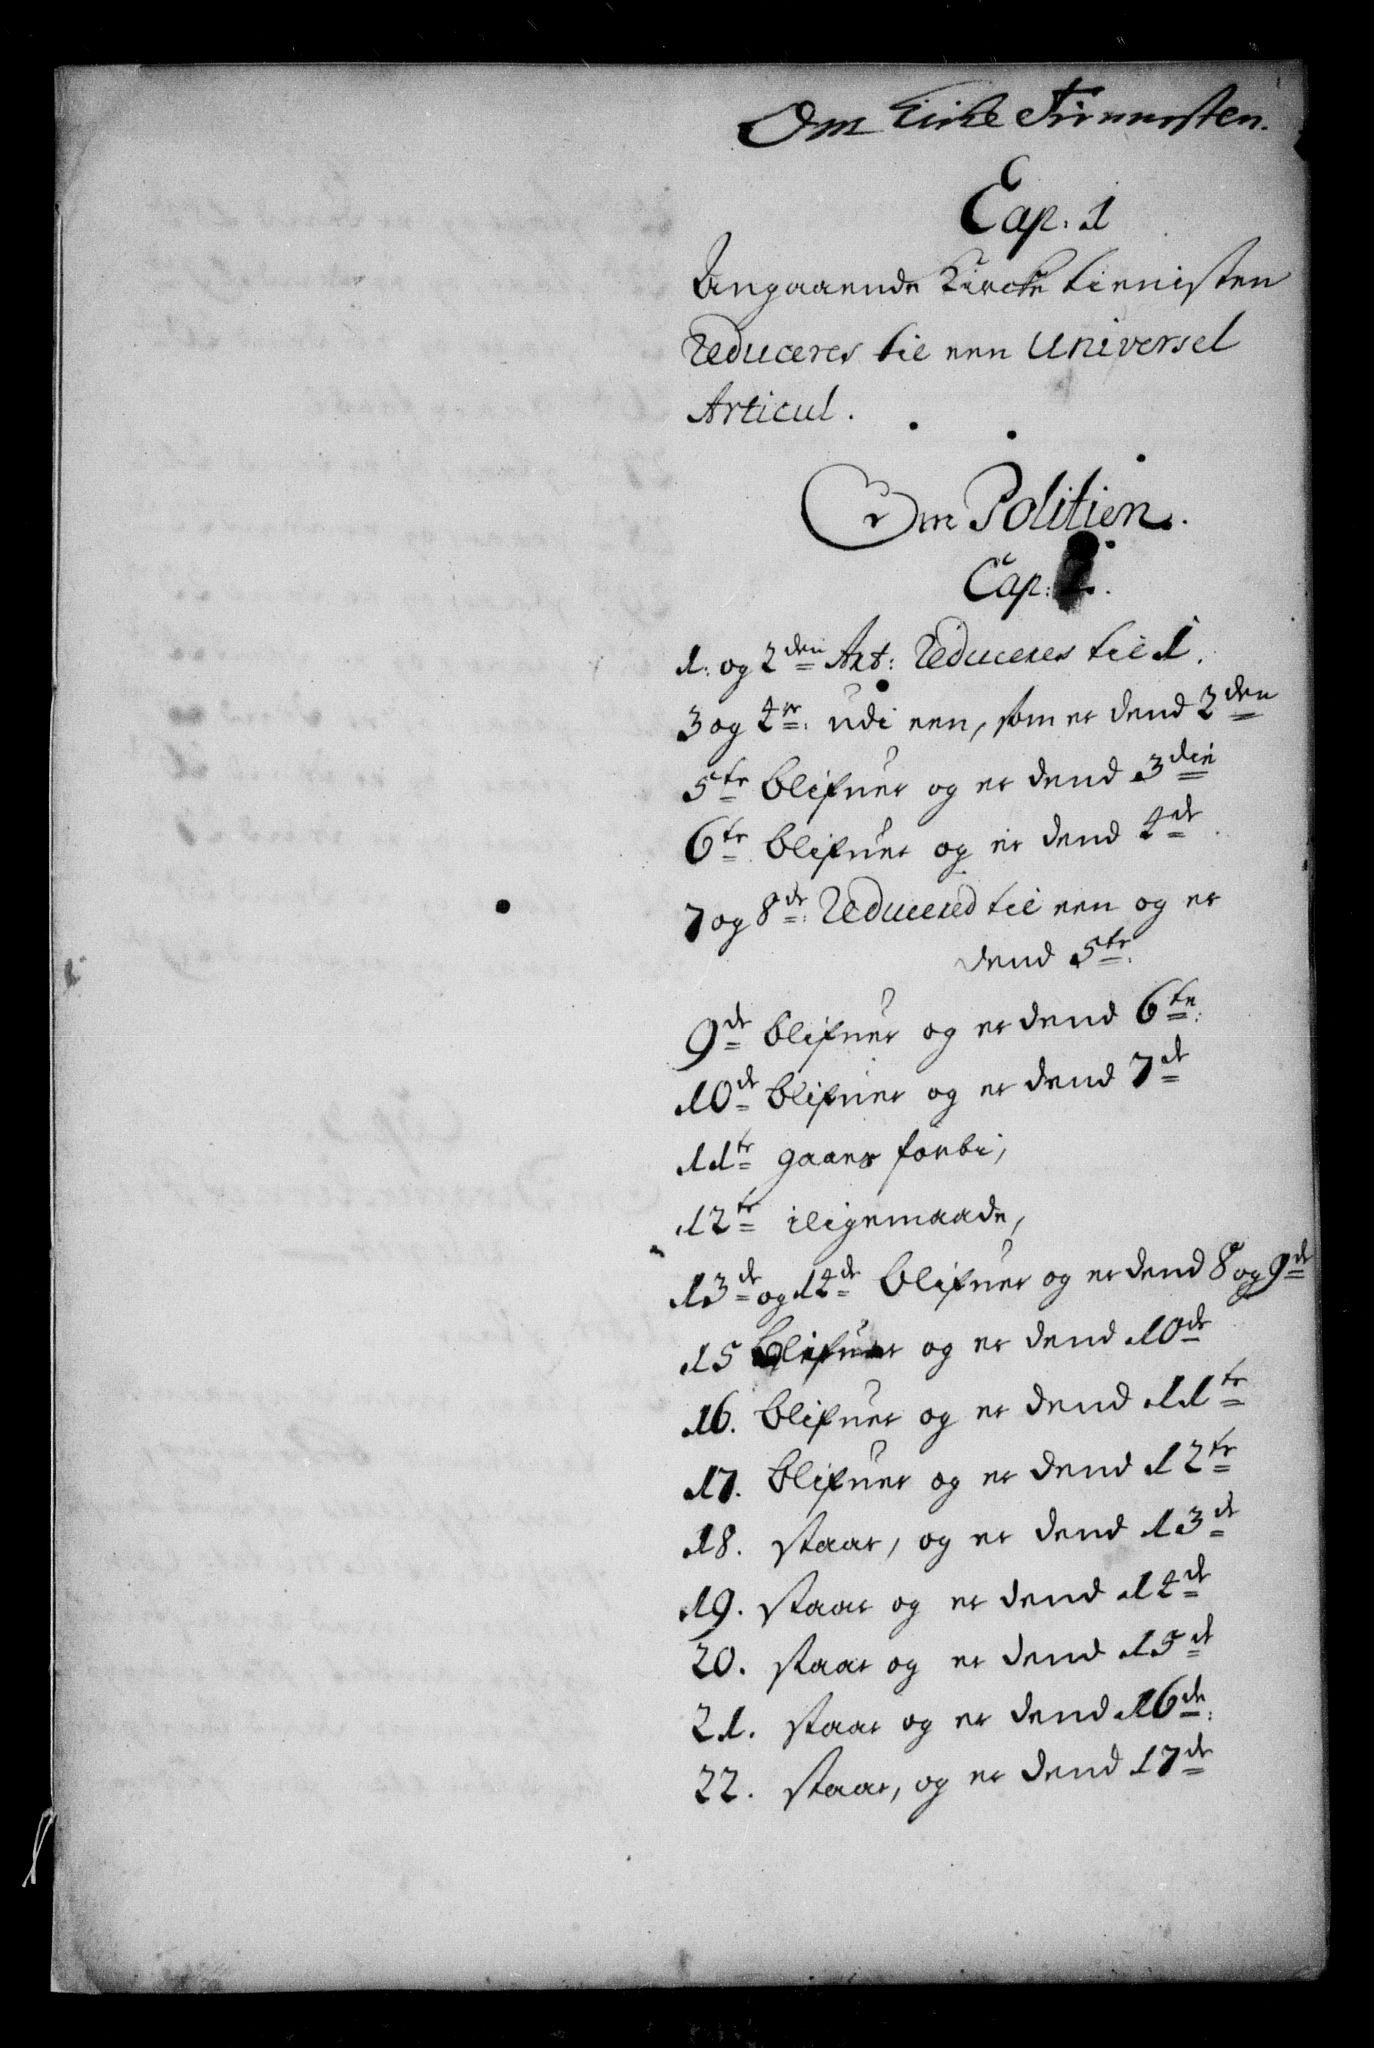 Om Kirke Tiennisten.
Cap. 1
Angaaende Kircke tienisten
Reduceres til een Universel
Articul.
Om Politien.
Cap:
1. og 2den Art: Reduceres til 1.
3 og 4te udi een, som er dend 2den
5te blifuer og er dend 3die
6te blifuer og er dend 4de
7 og 8de Reducered til een og er
dend 5te
9de blifuer og er dend 6te
10de blifuer og er dend 7de
11te gaaes forbi,
12te iligemaade,
13de og 14de blifuer og er dend 8 og 9de
15 blifuer og er dend 10de
16. blifuer og er dend 11te
17. blifuer og er dend 12te
18. staar, og er dend 13de
19. staar og er dend 14de
20. staar og er dend 15de
21. staar og er dend 16de
22. staar, og er dend 17de